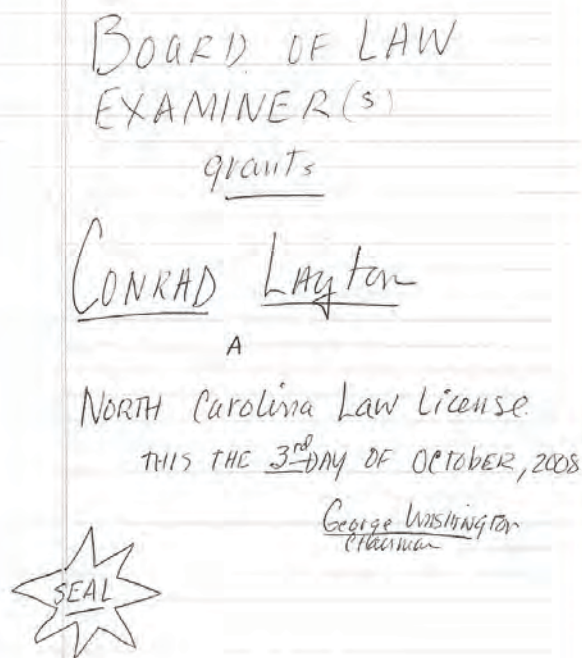 BOARD OF LAW
EXAMINER(S)
grants
CONRAD Layton
A
NORTH Carolina Law License.
THIS THE 3rd DAY OF OCTOBER, 2008
George Washington
Chairman
SEAL